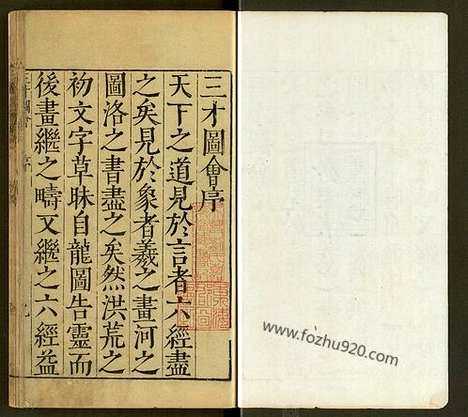 三才圖會序
天下之道見於言者六經盡
之矣見於象者羲之畫河之
圖洛之書盡之矣然洪荒之
初文字草昧自龍圖告靈而
後畫繼之疇又繼之六經益
三才圖會 序
www.fozhu920.com